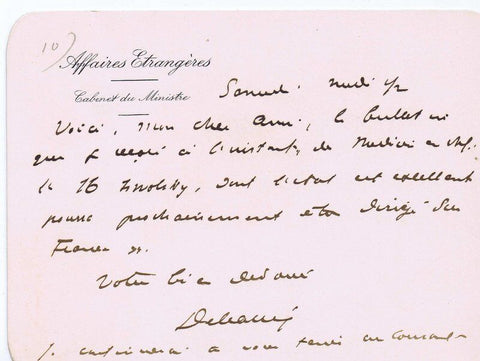 10)
Affaires Etrangères
Cabinet du Ministre
Samedi midi 1/2
Voici, mon cher Ami, le bulletin
que je reçois à l'instant, du Médecin en chef.
le dont l'état est excellent
pourra prochainement être dirigé sur
France ».
Votre bien dévoué
Delcassé
Je continuerai à vous tenir au courant